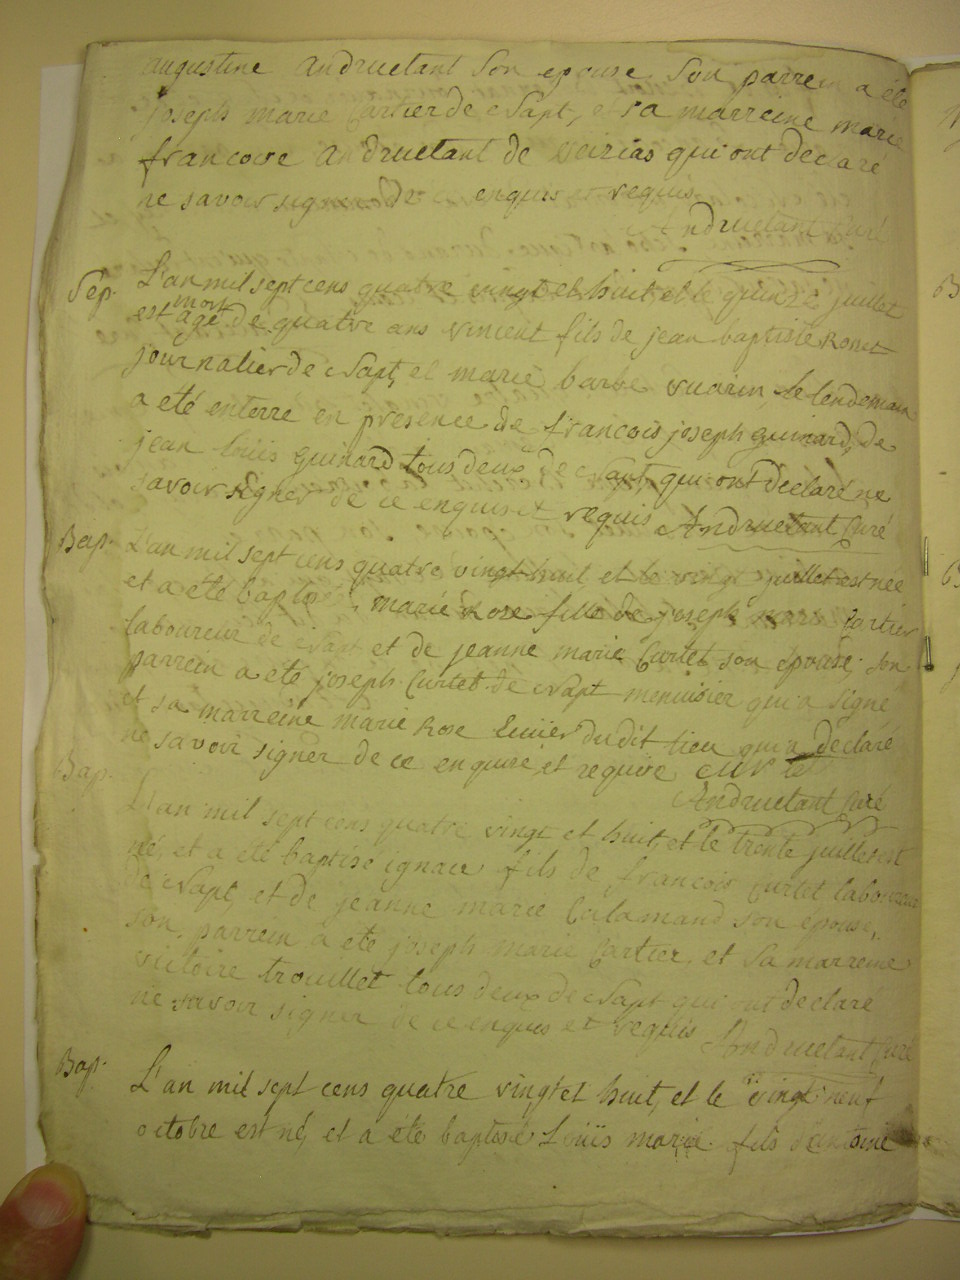 augustine andruetant son epouse, son parrein a été
joseph marie Cartier de Sapt, et sa marreine marie
francoise andruetant de veirias qui ont declaré
ne savoir signer de ce enquis et requis
Andruetant Curé
Sép. L'an mil sept cens quatre vingt et huit et le quinze juillet
mort
est agé de quatre ans vincent fils de jean baptiste Ronet
journalier de Sapt, et marie barbe vuarin, le lendemain
a été enterre en presence de francois joseph guinard, de
jean louis guinard tous deux de Sapt, qui ont declaré ne
savoir signer de ce enquis et requis Andruetant Curé
Bap. L'an mil sept cens quatre vingt huit et le vingt juillet est née
et a été baptisée marie Rose fille de joseph marie Cartier
laboureur de Sapt et de jeanne marie Curtet son epouse, son
parrein a eté joseph Curtet de Sapt menuisier qui a signé
et sa marreine marie Rose dudit lieu qui a declaré
ne savoir signer de ce enquise et requise
Andruetant Curé
Bap. L'an mil sept cens quatre vingt et huit, et le trente juillet est
né, et a été baptisé ignace fils de francois Curtet laboureur
de Sapt, et de jeanne marie Calamand son epouse,
son parrein a eté joseph marie Cartier, et sa marreine
victoire trouillet tous deux de Sapt qui ont declaré
ne savoir signer de ce enquis et requis Andruetant Curé
Bap. L'an mil sept cens quatre vingt et huit, et le vingt neuf
octobre est né, et a été baptisé Louis marie fils d'antoine